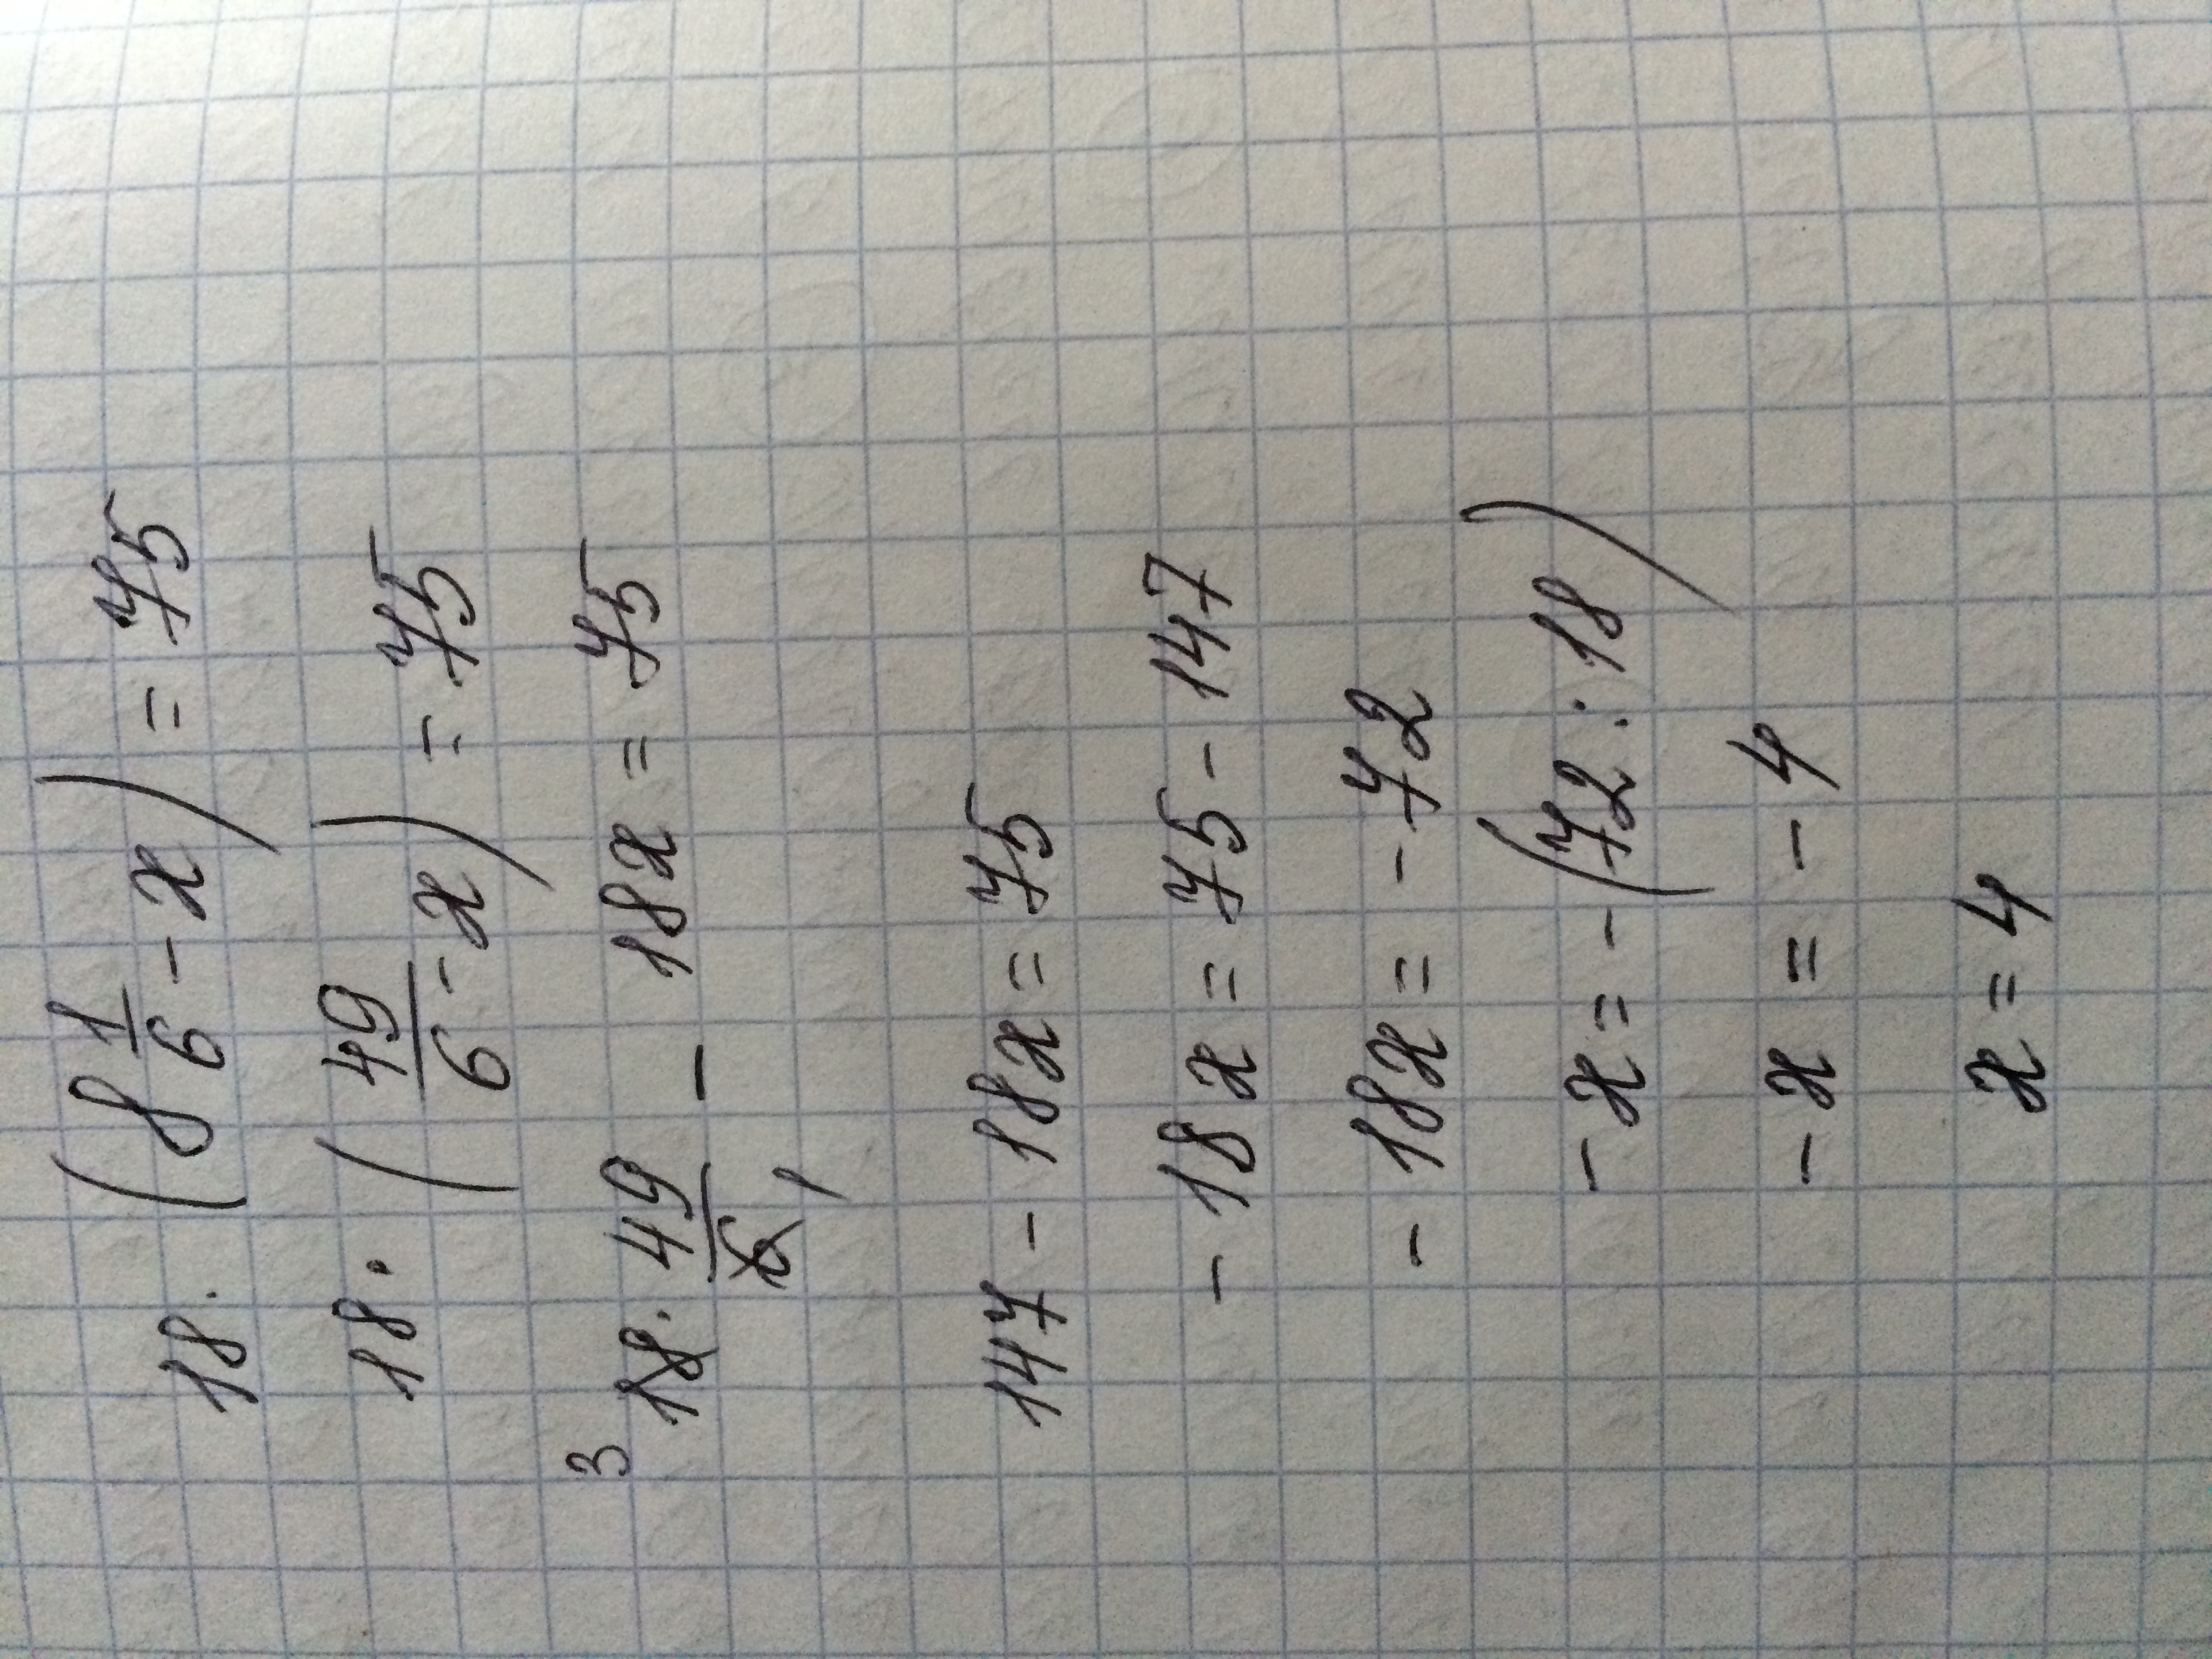 18 · (8 1/6 - x) = 75
18 · (49/6 - x) = 75
³18 · 49/6₁ - 18x = 75
147 - 18x = 75
- 18x = 75 - 147
- 18x = - 72
- x = - (72 : 18)
- x = - 4
x = 4